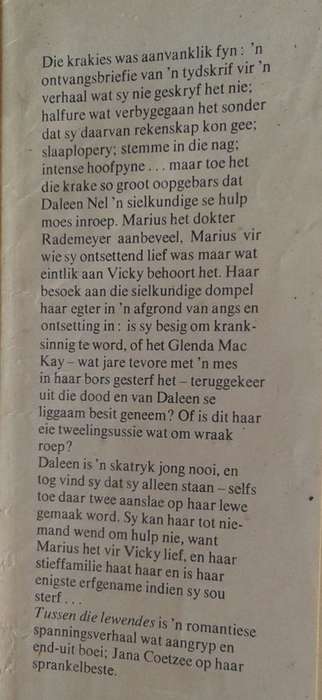 Die krakies was aanvanklik fyn: 'n
ontvangsbriefie van 'n tydskrif vir 'n
verhaal wat sy nie geskryf het nie;
halfure wat verbygegaan het sonder
dat sy daarvan rekenskap kon gee;
slaaplopery; stemme in die nag;
intense hoofpyne . . . maar toe het
die krake so groot oopgebars dat
Daleen Nel 'n sielkundige se hulp
moes inroep. Marius het dokter
Rademeyer aanbeveel, Marius vir
wie sy ontsettend lief was maar wat
eintlik aan Vicky behoort het. Haar
besoek aan die sielkundige dompel
haar egter in 'n afgrond van angs en
ontsetting in: is sy besig om krank-
sinnig te word, of het Glenda Mac
Kay – wat jare tevore met 'n mes
in haar bors gesterf het – teruggekeer
uit die dood en van Daleen se
liggaam besit geneem? Of is dit haar
eie tweelingsussie wat om wraak
roep?
Daleen is 'n skatryk jong nooi, en
tog vind sy dat sy alleen staan – selfs
toe daar twee aanslae op haar lewe
gemaak word. Sy kan haar tot nie-
mand wend om hulp nie, want
Marius het vir Vicky lief, en haar
stieffamilie haat haar en is haar
enigste erfgename indien sy sou
sterf . . .
Tussen die lewendes is 'n romantiese
spanningsverhaal wat aangryp en
end-uit boei; Jana Coetzee op haar
sprankelbeste.